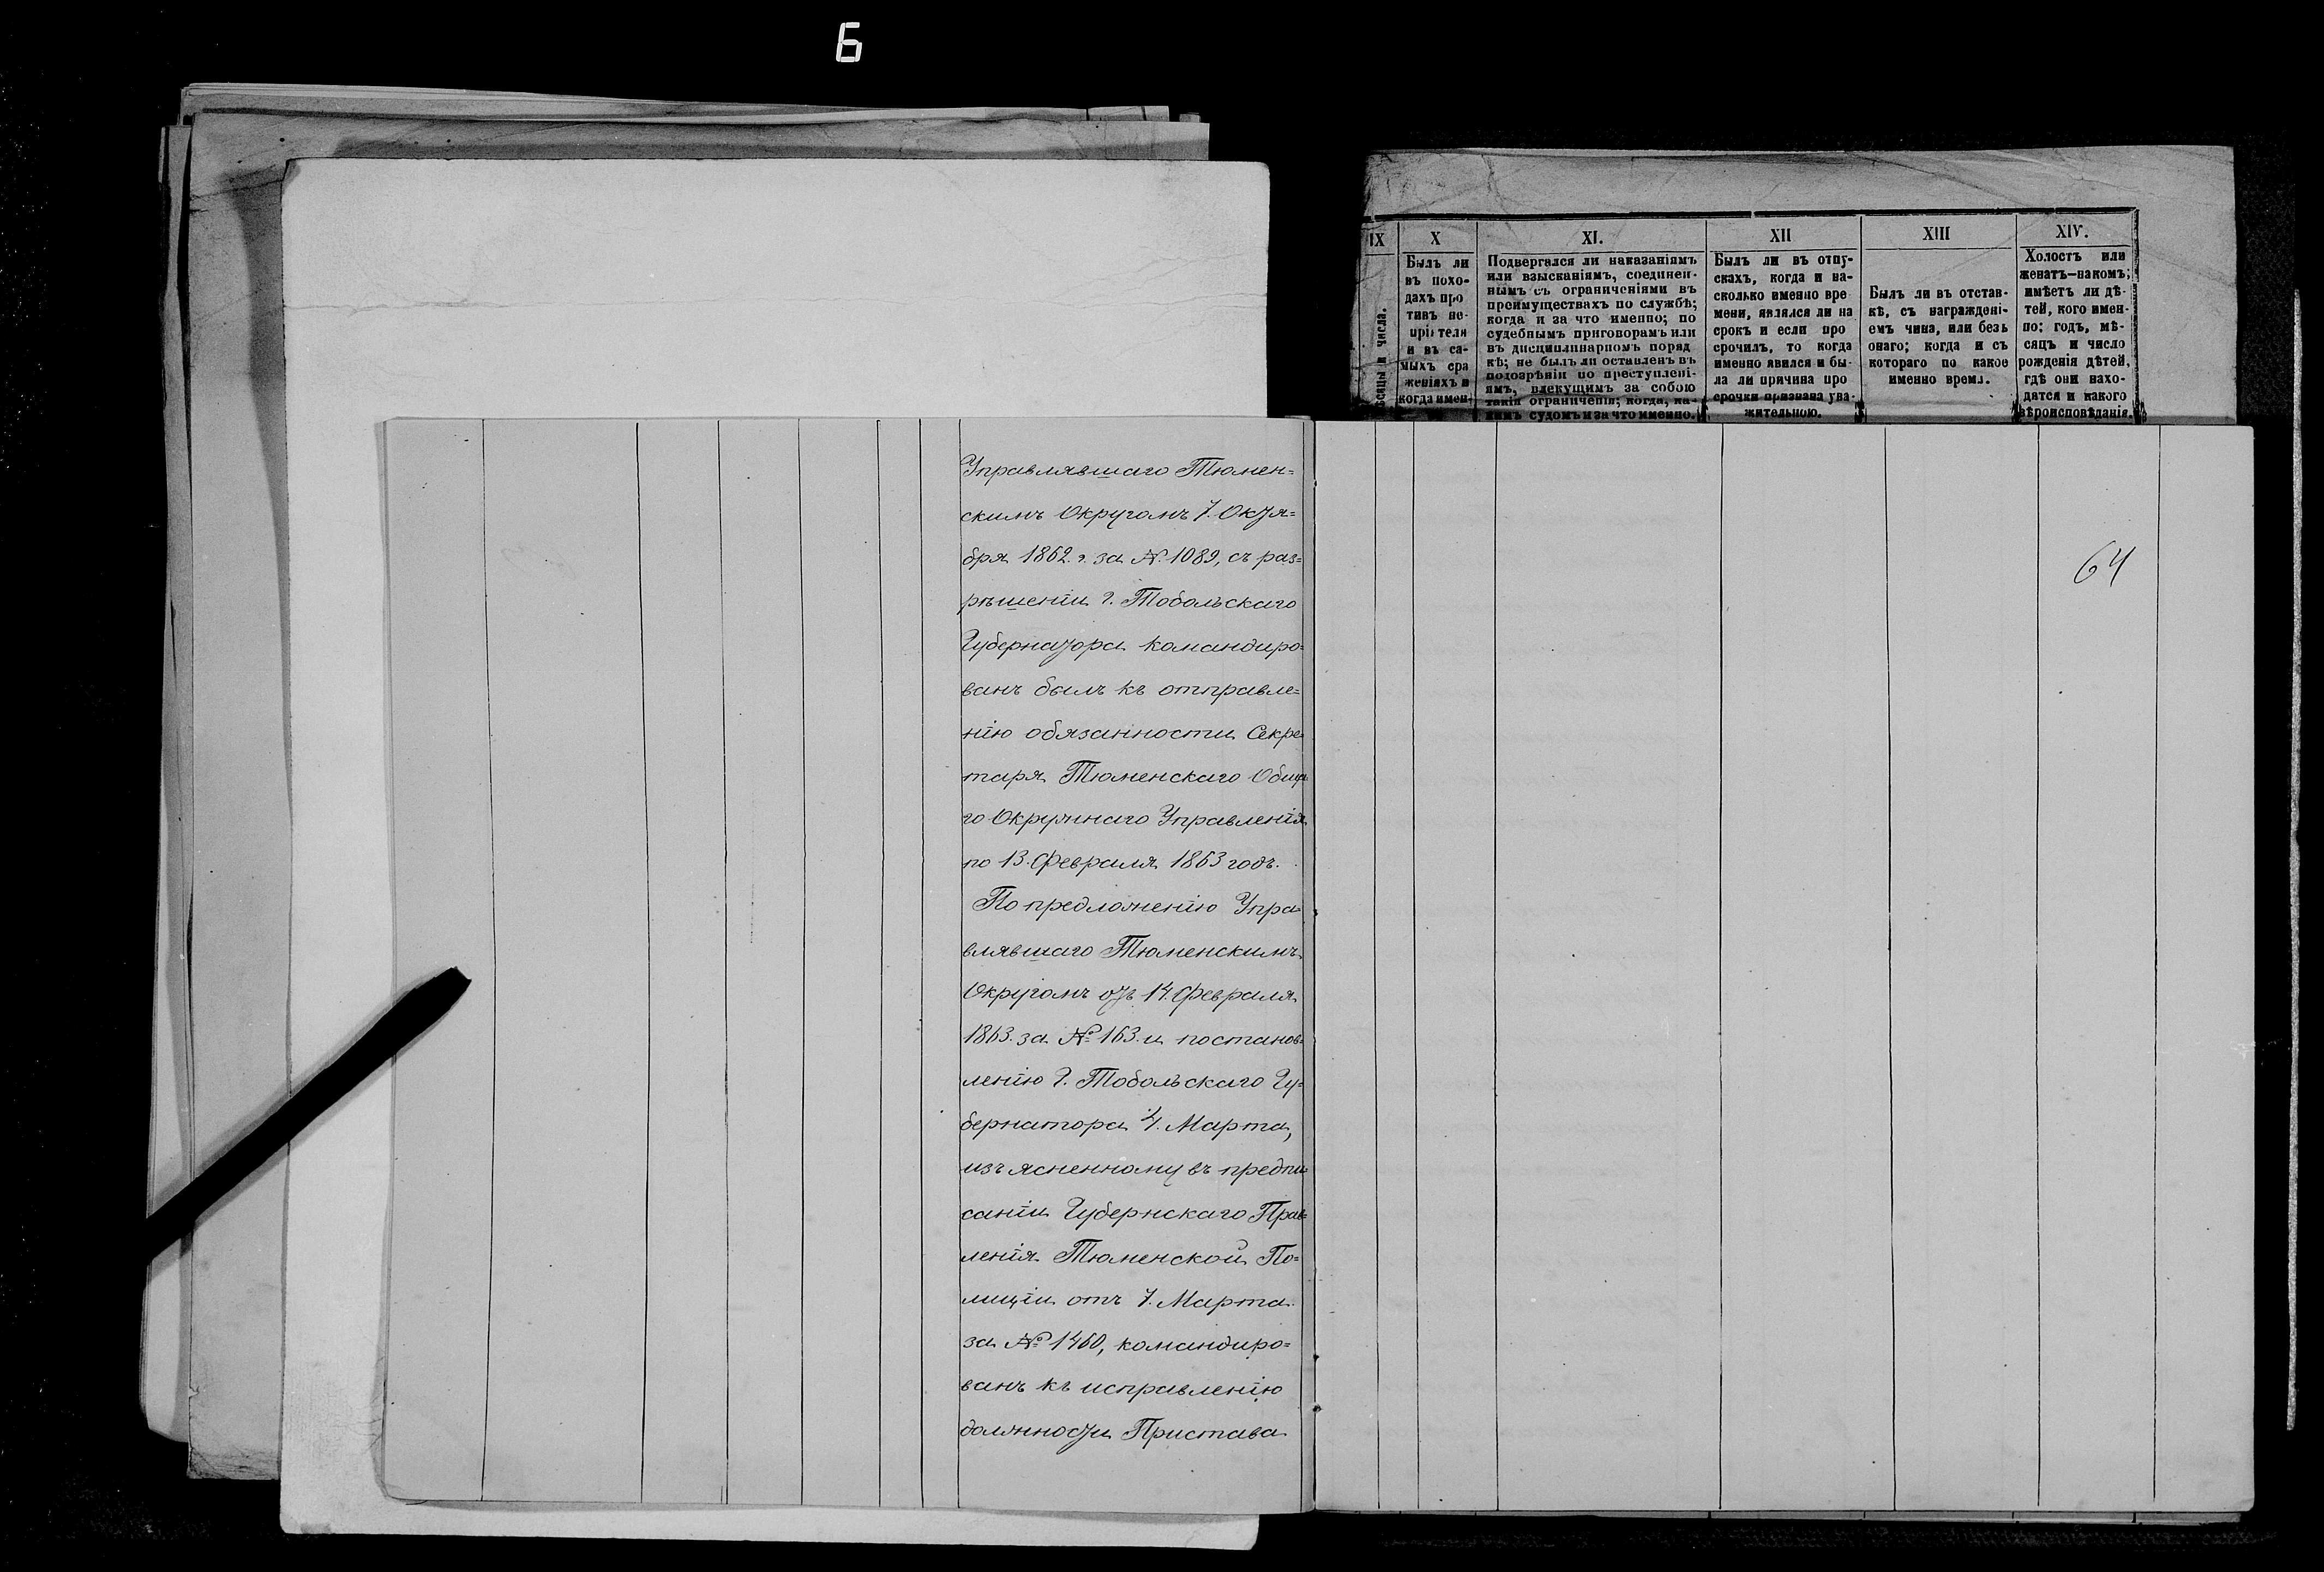 Б
IX
X
XI.
XII
XIII
XIV.
числа.
Былъ ли
въ похо-
дахъ про
тивъ не-
прiятеля
и въ са-
мыхъ сра
женiяхъ и
когда имен-
Подвергался ли наказанiямъ
или взысканiямъ, соединен-
нымъ съ ограниченiями въ
преимуществахъ по службѣ;
когда и за что именно; по
судебнымъ приговорамъ или
въ дисциплинарномъ поряд
кѣ; не былъ ли оставленъ въ
подозрѣнiи по преступленi-
ямъ, влекущимъ за собою
такiя ограниченiя; когда, ка-
кимъ судомъ и за что именно.
Былъ ли въ отпу-
скахъ, когда и на-
сколько именно вре
мени, являлся ли на
срокъ и если про
срочилъ, то когда
именно явился и бы-
ла ли причина про
срочки признана ува-
жительною.
Былъ ли въ отстав-
кѣ, съ награжденi-
емъ чина, или безъ
онаго; когда и съ
котораго по какое
именно время.
Холостъ или
женатъ—на комъ;
имѣетъ ли дѣ-
тей, кого имен-
но: годъ, мѣ-
сяцъ и число
рожденiя дѣтей,
гдѣ они нахо-
дятся и какого
вѣроисповѣданiя.
Управлявшаго Тюмен=
скимъ Округомъ 7. Октя=
бря 1862. г. за №. 1089, съ раз=
рѣшенiи Г. Тобольскаго
Губернатора командиро=
ванъ былъ къ отправле=
нiю обязанности Секре
таря Тюменскаго Обща
го Окружнаго Управленiя
по 13. Февраля 1863 годъ.
По предложенiю Упра=
влявшаго Тюменскимъ
Округомъ отъ 14. Февраля
1863. за № 163. и постанов
ленiю Г. Тобольскаго Гу=
бернатора 4. Марта,
изъясненному въ предпи
санiи Губернскаго Прав=
ленiя Тюменской По=
лицiи отъ 7. Марта
за № 1460, командиро=
ванъ къ исправленiю
должности Пристава
64